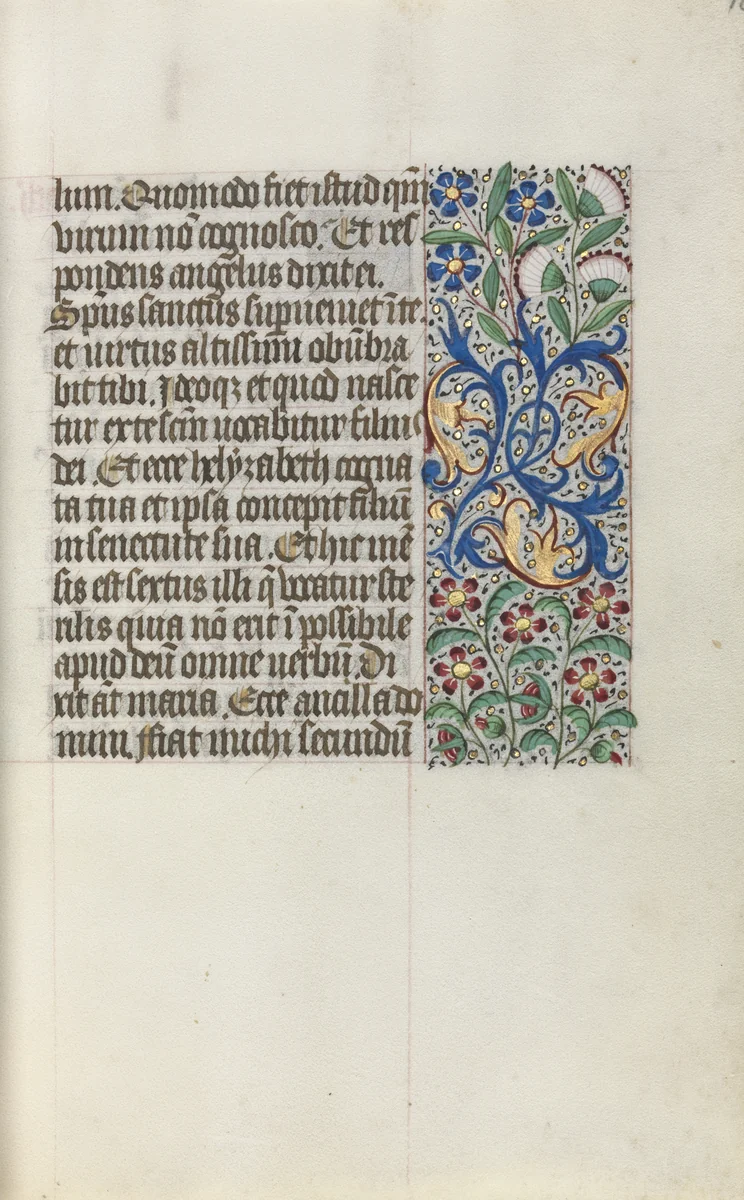 lum. Quomodo fiet istud qm̄
virum nō cognosco. Et res
pondens angelus dixit ei.
Sp̄us sanctus sup̄veniet ī te.
et virtus altissimi obūbra
bit tibi. Ideoqz et quod nasce
tur ex te scm̄ vocabitur filius
dei. Et ecce helyzabeth cogna
ta tua et ipsa concepit filiū
in senectute sua. Et hic mē
sis est sextus illi q̄ vocatur ste
rilis quia nō erit ī possibile
apud deū omne verbū. Di
xit āt maria. Ecce ancilla do
mini. fiat michi secundū